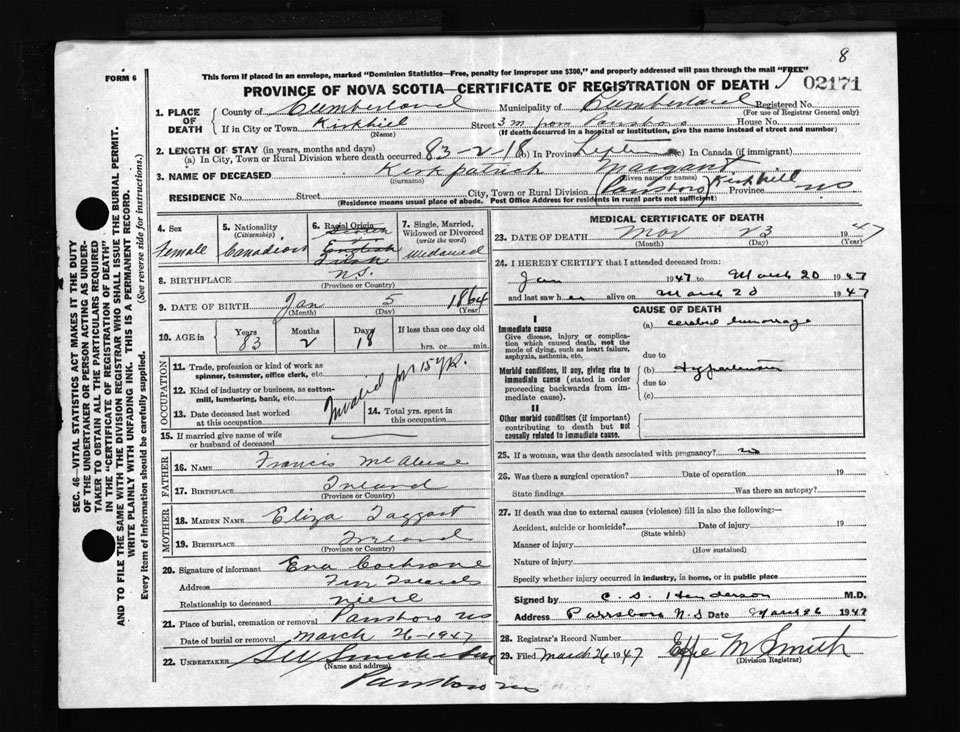 8
FORM 6
This form if placed in an envelope, marked "Dominion Statistics—Free, penalty for improper use $300," and properly addressed will pass through the mail "FREE"
PROVINCE OF NOVA SCOTIA—CERTIFICATE OF REGISTRATION OF DEATH
02171
1. PLACE OF DEATH
County of Cumberland Municipality of Cumberland Registered No.
(For use of Registrar General only)
If in City or Town Kirkhill Street 3 m from Parrsboro House No.
(Name) (If death occurred in a hospital or institution, give the name instead of street and number)
2. LENGTH OF STAY (in years, months and days)
(a) In City, Town or Rural Division where death occurred 83-2-18 (b) In Province (c) In Canada (if immigrant)
3. NAME OF DECEASED Kirkpatrick Margaret
(Surname) (Given name or names)
RESIDENCE No. Street City, Town or Rural Division (Parrsboro) Kirkhill Province NS
(Residence means usual place of abode. Post Office Address for residents in rural parts not sufficient)
4. Sex
Female
5. Nationality
(Citizenship)
Canadian
6. Racial Origin
English
Irish
7. Single, Married, Widowed or Divorced
(write the word)
Widowed
8. BIRTHPLACE N.S.
(Province or Country)
9. DATE OF BIRTH Jan 5 1864
(Month) (Day) (Year)
10. AGE in Years Months Days If less than one day old
83 2 18 hrs. or min.
OCCUPATION
11. Trade, profession or kind of work as
spinner, teamster, office clerk, etc.
12. Kind of industry or business, as cotton-
mill, lumbering, bank, etc.
Invalid for 15 yr.
13. Date deceased last worked
at this occupation
14. Total yrs. spent in
this occupation
15. If married give name of wife
or husband of deceased
FATHER
16. NAME Francis
17. BIRTHPLACE Ireland
(Province or Country)
MOTHER
18. MAIDEN NAME Eliza Taggart
19. BIRTHPLACE Ireland
(Province or Country)
20. Signature of informant Eva Cochrane
Address
Relationship to deceased niece
21. Place of burial, cremation or removal Parrsboro NS
Date of burial or removal March 26-1947
22. UNDERTAKER
(Name and address)
Parrsboro NS
MEDICAL CERTIFICATE OF DEATH
23. DATE OF DEATH Mar 23 1947
(Month) (Day) (Year)
24. I HEREBY CERTIFY that I attended deceased from:
Jan 1947 to March 20 1947
and last saw her alive on March 20 1947
CAUSE OF DEATH
I
Immediate cause
Give disease, injury or complica-
tion which caused death, not the
mode of dying, such as heart failure,
asphyxia, asthenia, etc.
(a)
due to
Morbid conditions, if any, giving rise to
immediate cause (stated in order
proceeding backwards from im-
mediate cause).
(b) Hypertension
due to
(c)
II
Other morbid conditions (if important)
contributing to death but not
causally related to immediate cause.
25. If a woman, was the death associated with pregnancy? no
26. Was there a surgical operation? Date of operation 19
State findings Was there an autopsy?
27. If death was due to external causes (violence) fill in also the following:—
Accident, suicide or homicide? Date of injury 19
(State which)
Manner of injury
(How sustained)
Nature of injury
Specify whether injury occurred in industry, in home, or in public place
Signed by C. S. Henderson M.D.
Address Parrsboro N.S Date March 26 1947
28. Registrar's Record Number
29. Filed March 26 1947 Effie M Smith
(Division Registrar)
SEC. 46—VITAL STATISTICS ACT MAKES IT THE DUTY
OF THE UNDERTAKER OR PERSON ACTING AS UNDER-
TAKER TO OBTAIN ALL THE PARTICULARS REQUIRED
IN THE "CERTIFICATE OF REGISTRATION OF DEATH"
AND TO FILE THE SAME WITH THE DIVISION REGISTRAR WHO SHALL ISSUE THE BURIAL PERMIT.
WRITE PLAINLY WITH UNFADING INK. THIS IS A PERMANENT RECORD.
Every item of information should be carefully supplied. (See reverse side for instructions.)